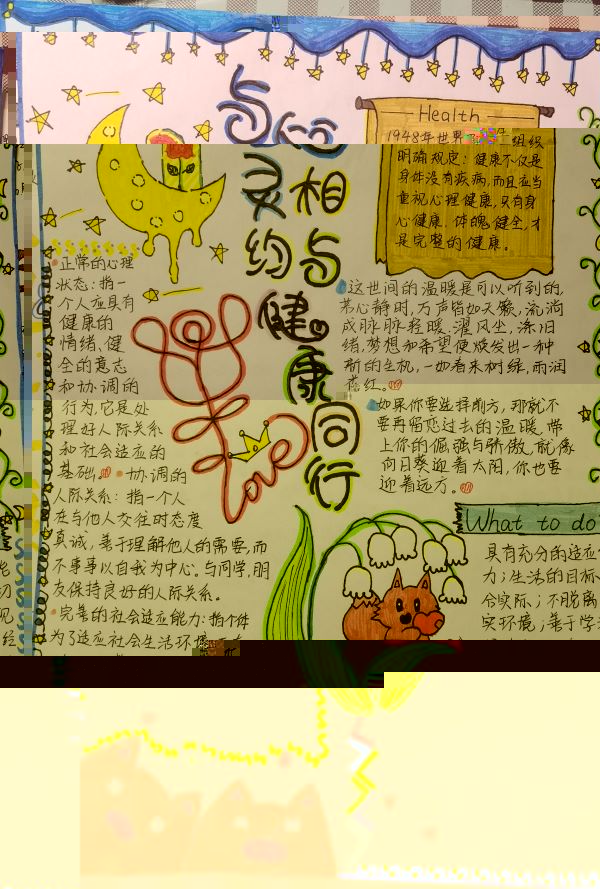 与心
灵相
约与
健
康
同
行
Health
1948年世界
组织
明确规定：健康不仅是
身体没有疾病，而且应当
重视心理健康，只有身
心健康、体魄健全，才
是完整的健康。
正常的心理
状态：指一
个人应具有
健康的
情绪、健
全的意志
和协调的
行为，它是处
理好人际关系
和社会适应的
基础。
协调的
人际关系：指一个人
在与他人交往时态度
真诚，善于理解他人的需要，而
不事事以自我为中心。与同学，朋
友保持良好的人际关系。
完善的社会适应能力：指个体
为了适应社会生活环境
这世间的温暖是可以听到的，
若心静时，万声皆如天籁，流淌
成脉脉轻暖，濯风尘，涤旧
绪，梦想和希望便焕发出一种
新的生机，一如春来树绿，雨润
花红。
如果你要选择前方，那就不
要再留恋过去的温暖，带
上你的倔强与骄傲，就像
向日葵迎着太阳，你也要
迎着远方。
Love
What to do
具有充分的适应
力；生活的目标
合实际；不脱离
实环境；善于学